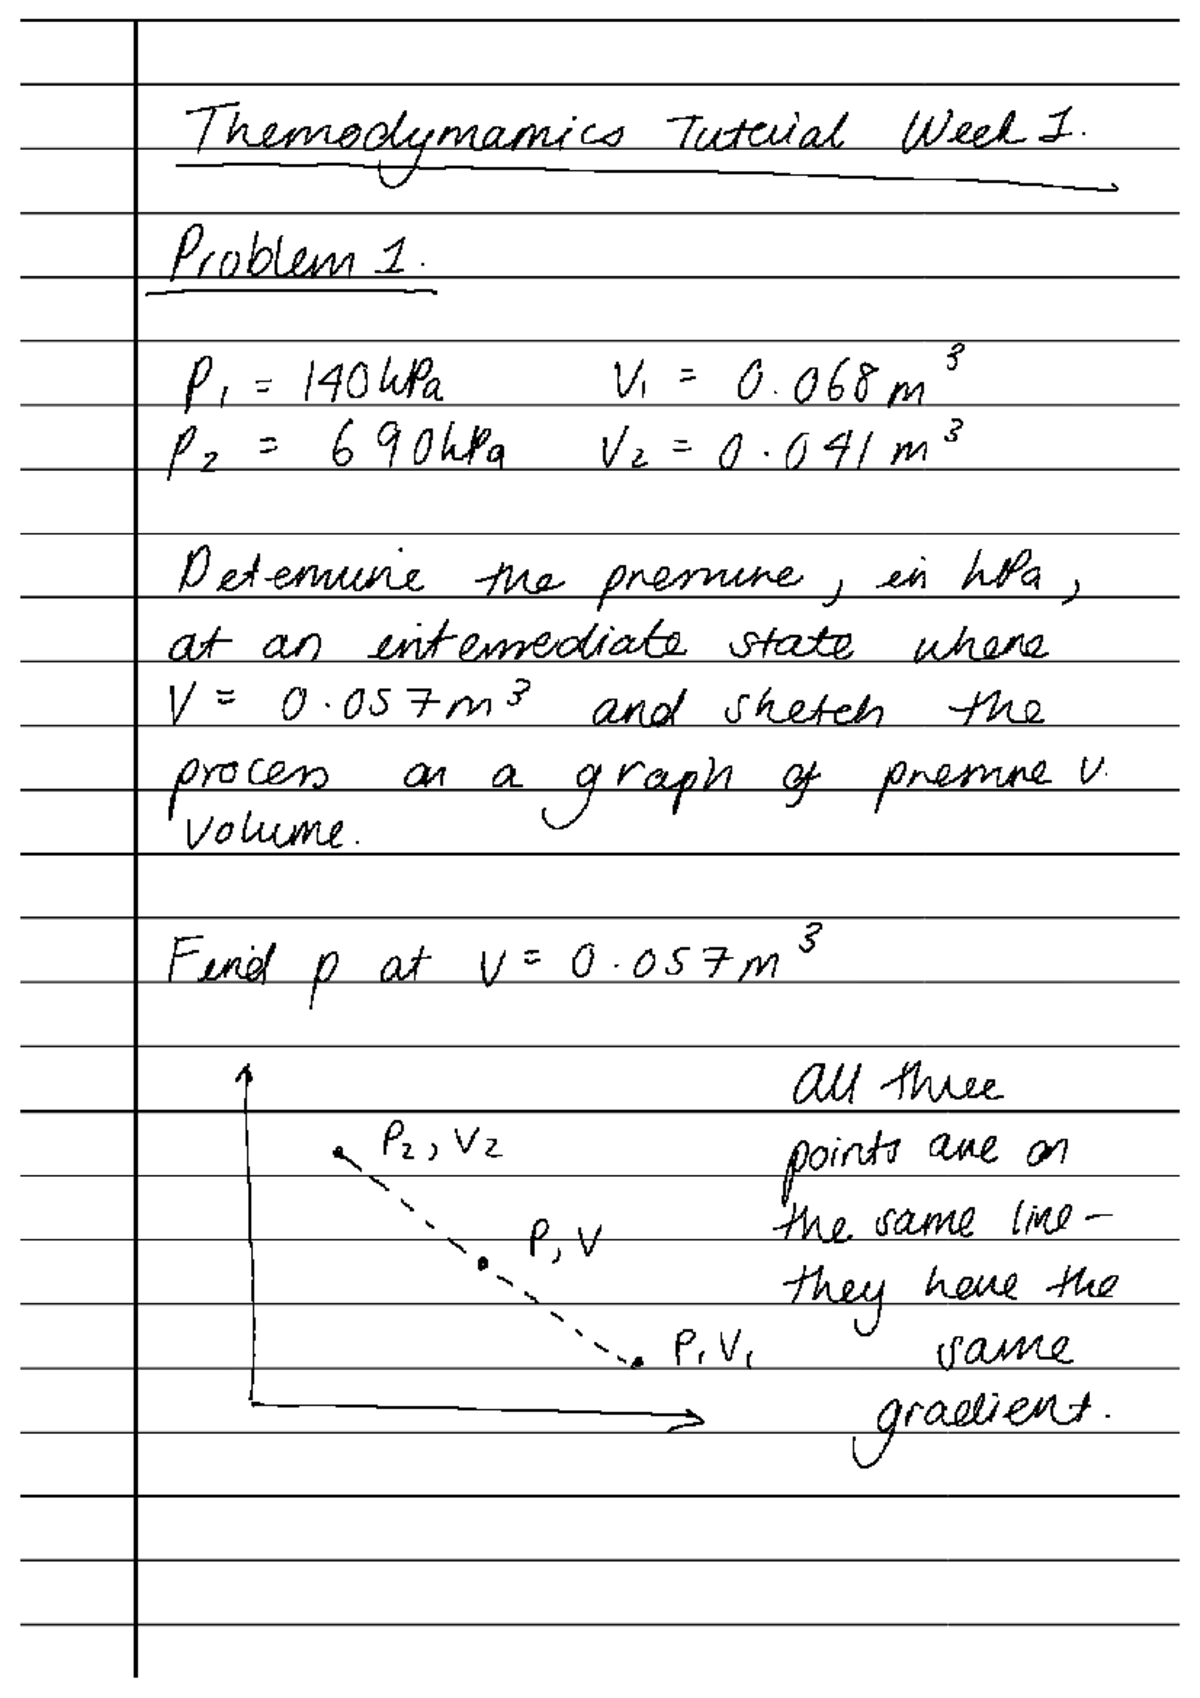 Themodynamics Tutorial Week 1.
Problem 1.
P₁ = 140hPa V₁ = 0.068m³
P₂ = 690hPa V₂ = 0.041m³
Determine the pressure, in hPa,
at an intermediate state where
V = 0.057m³ and sketch the
process on a graph of pressure v.
volume.
Find p at V = 0.057m³
P₂, V₂
P, V
P₁ V₁
All three
points are on
the same line -
they have the
same
gradient.